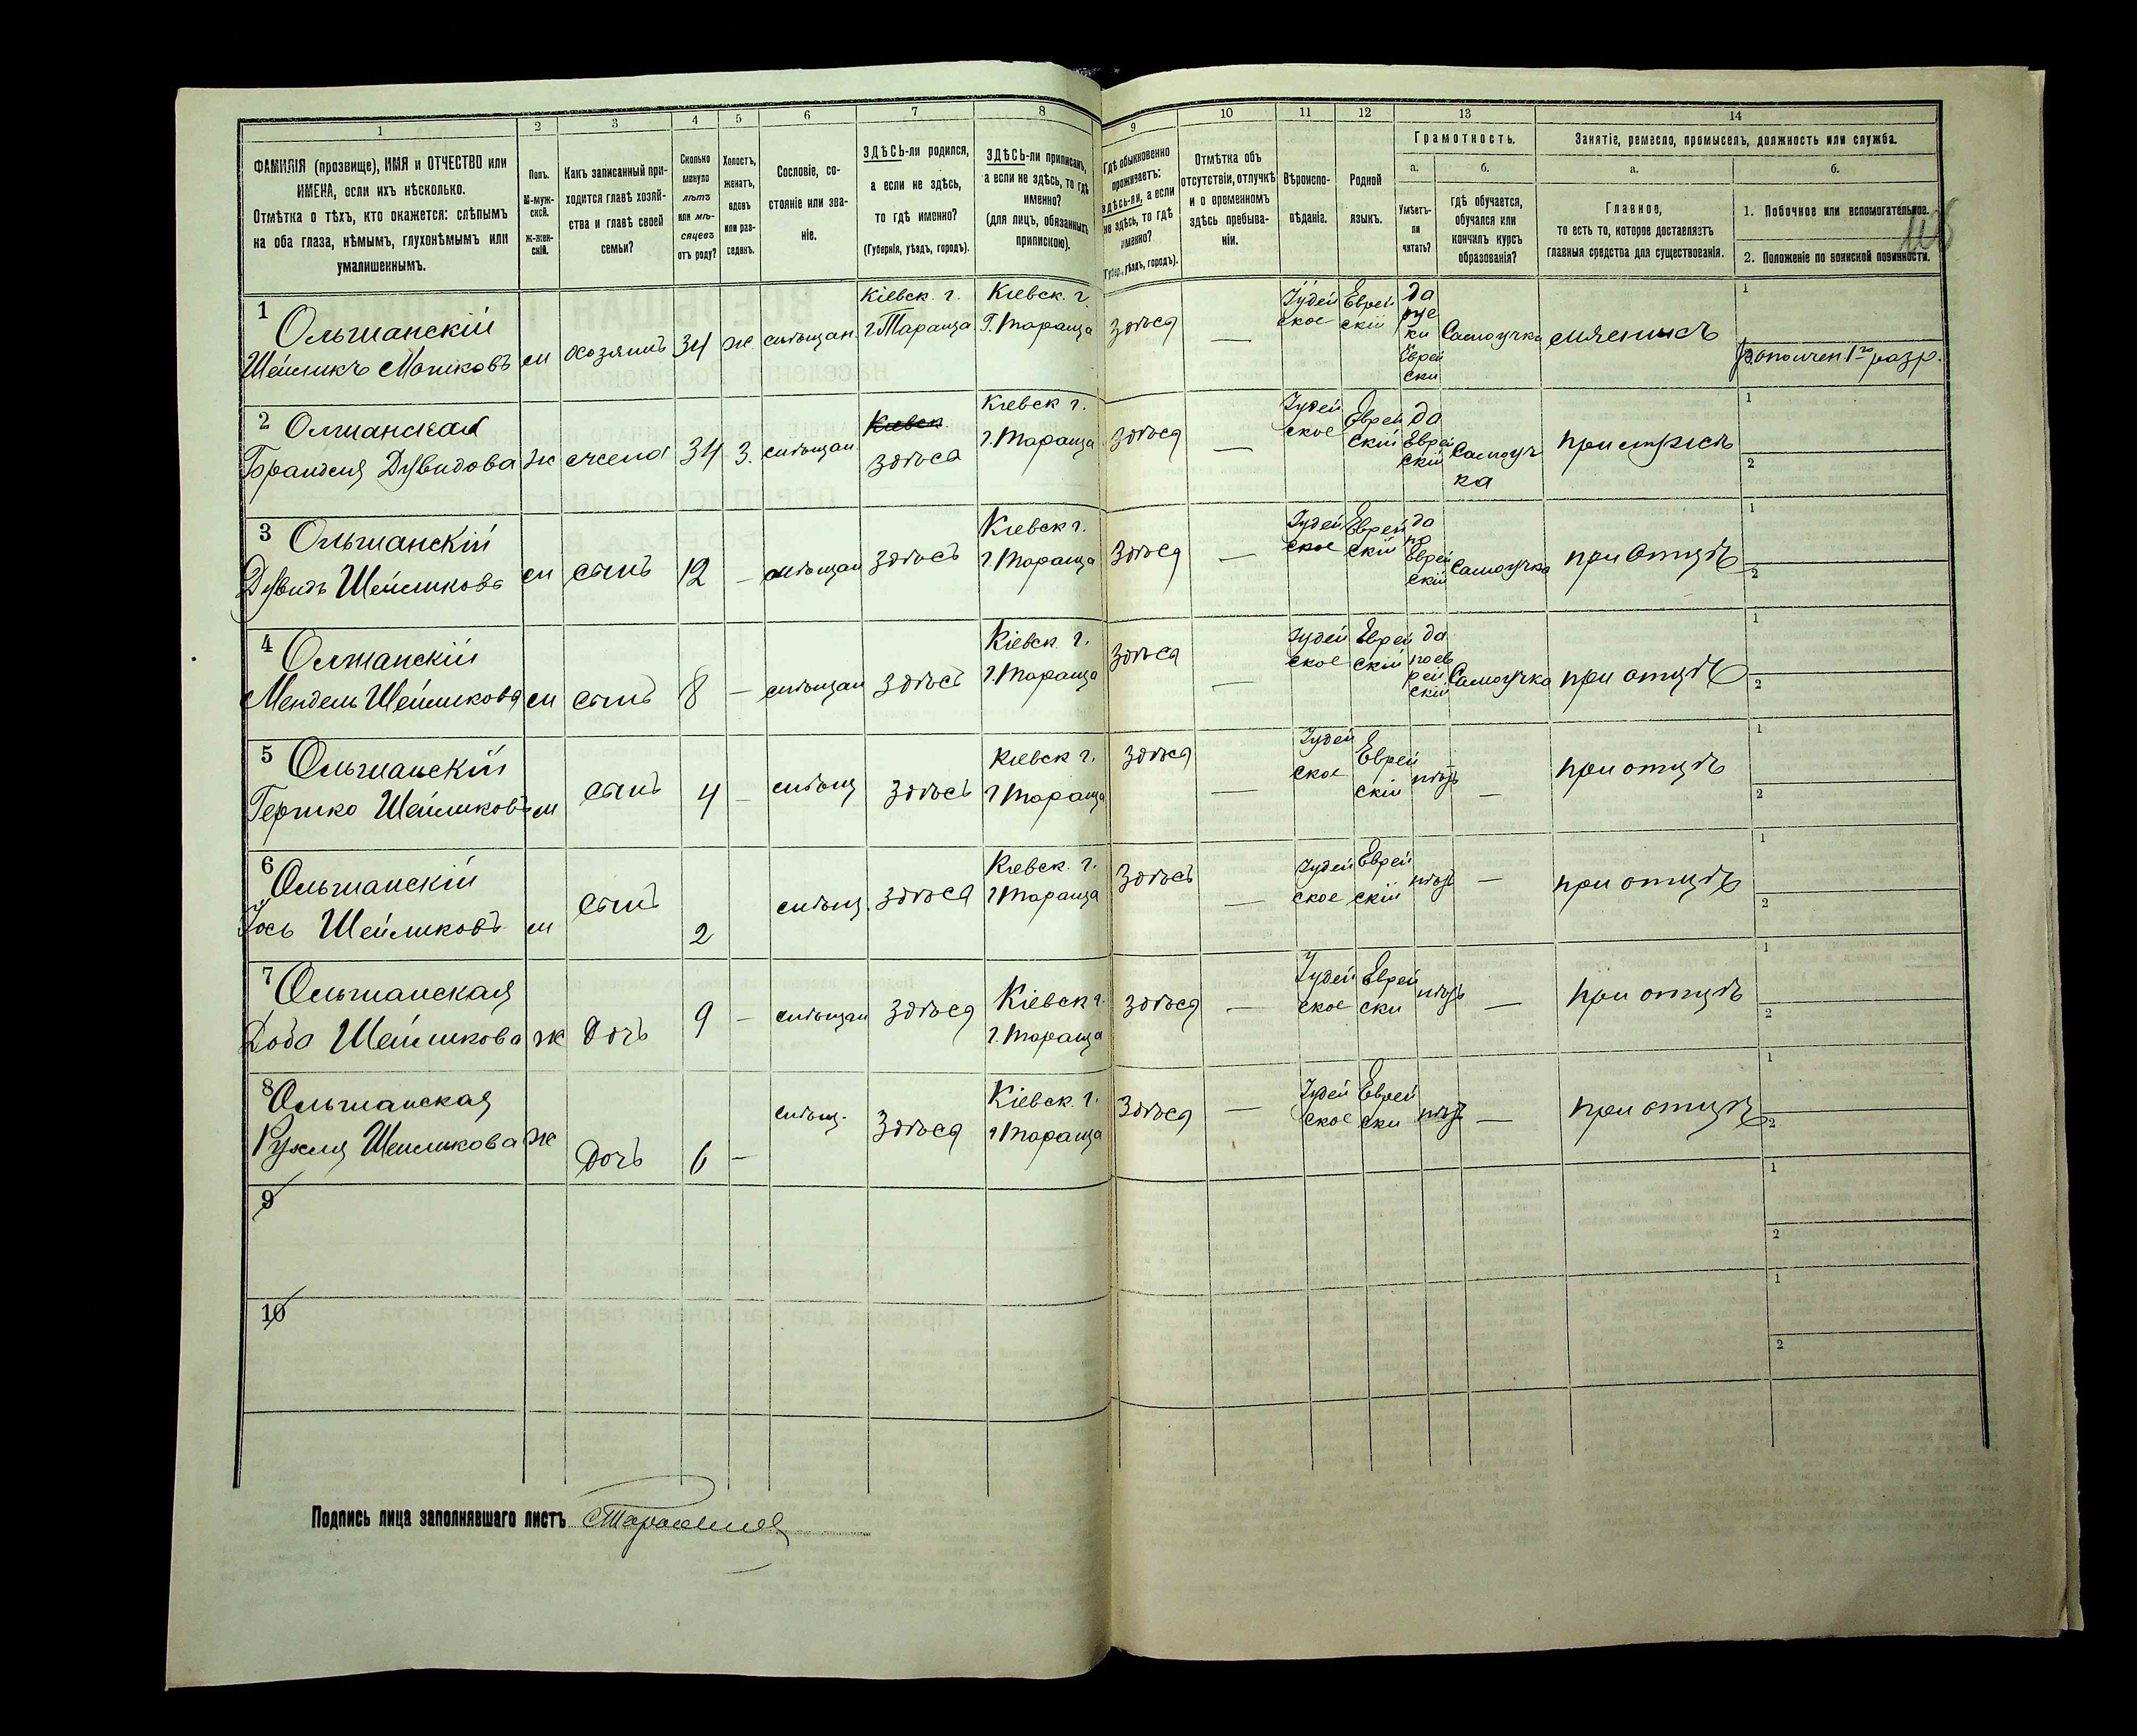 1 2 3 4 5 6 7 8 9 10 11 12 13 14
ФАМИЛІЯ (прозвище), ИМЯ и ОТЧЕСТВО или
ИМЕНА, если ихъ нѣсколько.
Отмѣтка о тѣхъ, кто окажется: слѣпымъ
на оба глаза, нѣмымъ, глухонѣмымъ или
умалишеннымъ.
Полъ.
М-муж-
ской.
Ж-жен-
скій.
Какъ записанный при-
ходится главѣ хозяй-
ства и главѣ своей
семьи?
Сколько
минуло
лѣтъ
или мѣ-
сяцевъ
отъ роду?
Холостъ,
женатъ,
вдовъ
или раз-
веденъ.
Сословіе, со-
стояніе или зва-
ніе.
ЗДѢСЬ-ли родился,
а если не здѣсь,
то гдѣ именно?
(Губернія, уѣздъ, городъ).
ЗДѢСЬ-ли приписанъ,
а если не здѣсь, то гдѣ
именно?
(для лицъ, обязанныхъ
припискою).
Гдѣ обыкновенно
проживаетъ:
здѣсь-ли, а если
не здѣсь, то гдѣ
именно?
(Губер., уѣздъ, городъ).
Отмѣтка объ
отсутствіи, отлучкѣ
и о временномъ
здѣсь пребыва-
ніи.
Вѣроиспо-
вѣданіе.
Родной
языкъ.
Грамотность.
а.
Умѣетъ-
ли
читать?
б.
гдѣ обучается,
обучался или
кончилъ курсъ
образованія?
Занятіе, ремесло, промыселъ, должность или служба.
а.
Главное,
то есть то, которое доставляетъ
главныя средства для существованія.
б.
1. Побочное или вспомогательное.
2. Положеніе по воинской повинности.
1
Ольшанскій
Шейликъ Мошковъ
м
хозяинъ
34
ж
мѣщан.
Кіевск. г.
г. Тараща
Кіевск. г.
г. Тараща
здѣся
—
Іудей
ское
Еврей
скій
да
рус
ки
Еврей
ски
Самоучка
1
ополчен 1го разр.
2
Олшанская
Давидова
ж
жена
34
з.
мѣщан
Кіевск
здѣся
Кіевск г.
г. Тараща
здѣся
—
Іудей
ское
Еврей
скій
да
Еврей
скій
Самоуч
ка
при мужѣ
1
2
3
Ольшанскій
Дувидъ Шейликовъ
м
сынъ
12
—
мѣщан
здѣсъ
Кіевск г.
г. Тараща
здѣся
—
Іудей
ское
Еврей
скій
да
по
Еврей
скій
Самоучка
при отцѣ
1
2
4
Олшанскій
Мендель Шейликовъ
м
сынъ
8
—
мѣщан
здѣсъ
Кіевск. г.
г. Тараща
здѣся
—
Іудей
ское
Еврей
скій
да
по ев
рей
скій
Самоучка
при отцѣ
1
2
5
Ольшанскій
Гершко Шейликовъ
м
сынъ
4
—
мѣщ
здѣсъ
Кіевск г.
г Тараща
здѣся
—
Іудей
ское
Еврей
скій
нѣтъ
—
при отцѣ
1
2
6
Ольшанскій
Іось Шейликовъ
м
сынъ
2
мѣщ.
здѣся
Кіевск. г.
г Тараща
здѣсъ
—
Іудей
ское
Еврей
скій
нѣтъ
—
при отцѣ
1
2
7
Ольшанская
Доба Шейликова
ж
дочъ
9
—
мѣщан
здѣся
Кіевск г.
г. Тараща
здѣся
—
Іудей
ское
Еврей
ски
нѣтъ
—
при отцѣ
1
2
8
Ольшанская
Рухля Шейликова
ж
дочъ
6
—
мѣщ.
здѣся
Кіевск. г.
г Тараща
здѣся
—
Іудей
ское
Еврей
ски
нѣтъ
—
при отцѣ
1
2
9
1
2
10
1
2
Подпись лица заполнявшаго листъ